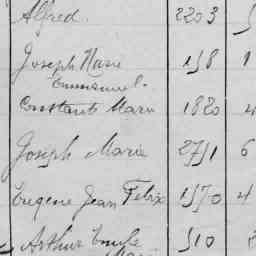 Alfred. 2203
Joseph Marie 158 1
Emmanuel.
Constant Marie 1820 4
Joseph Marie 2751 6
Eugene Jean Felix 1570 4
Arthur Emile 510
Marie